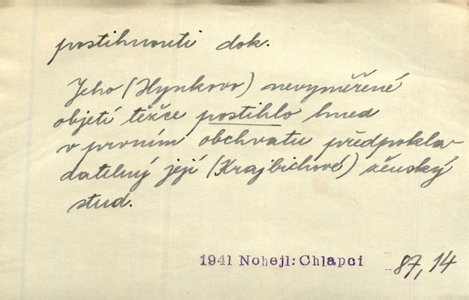 postihnouti dok.
Jeho (Hynkovo) nevyměřené
objetí těžce postihlo hned
v prvním obchvatu předpokla-
datelný její (Krajbichové) ženský
stud.
1941 Nohejl: Chlapci 87,14